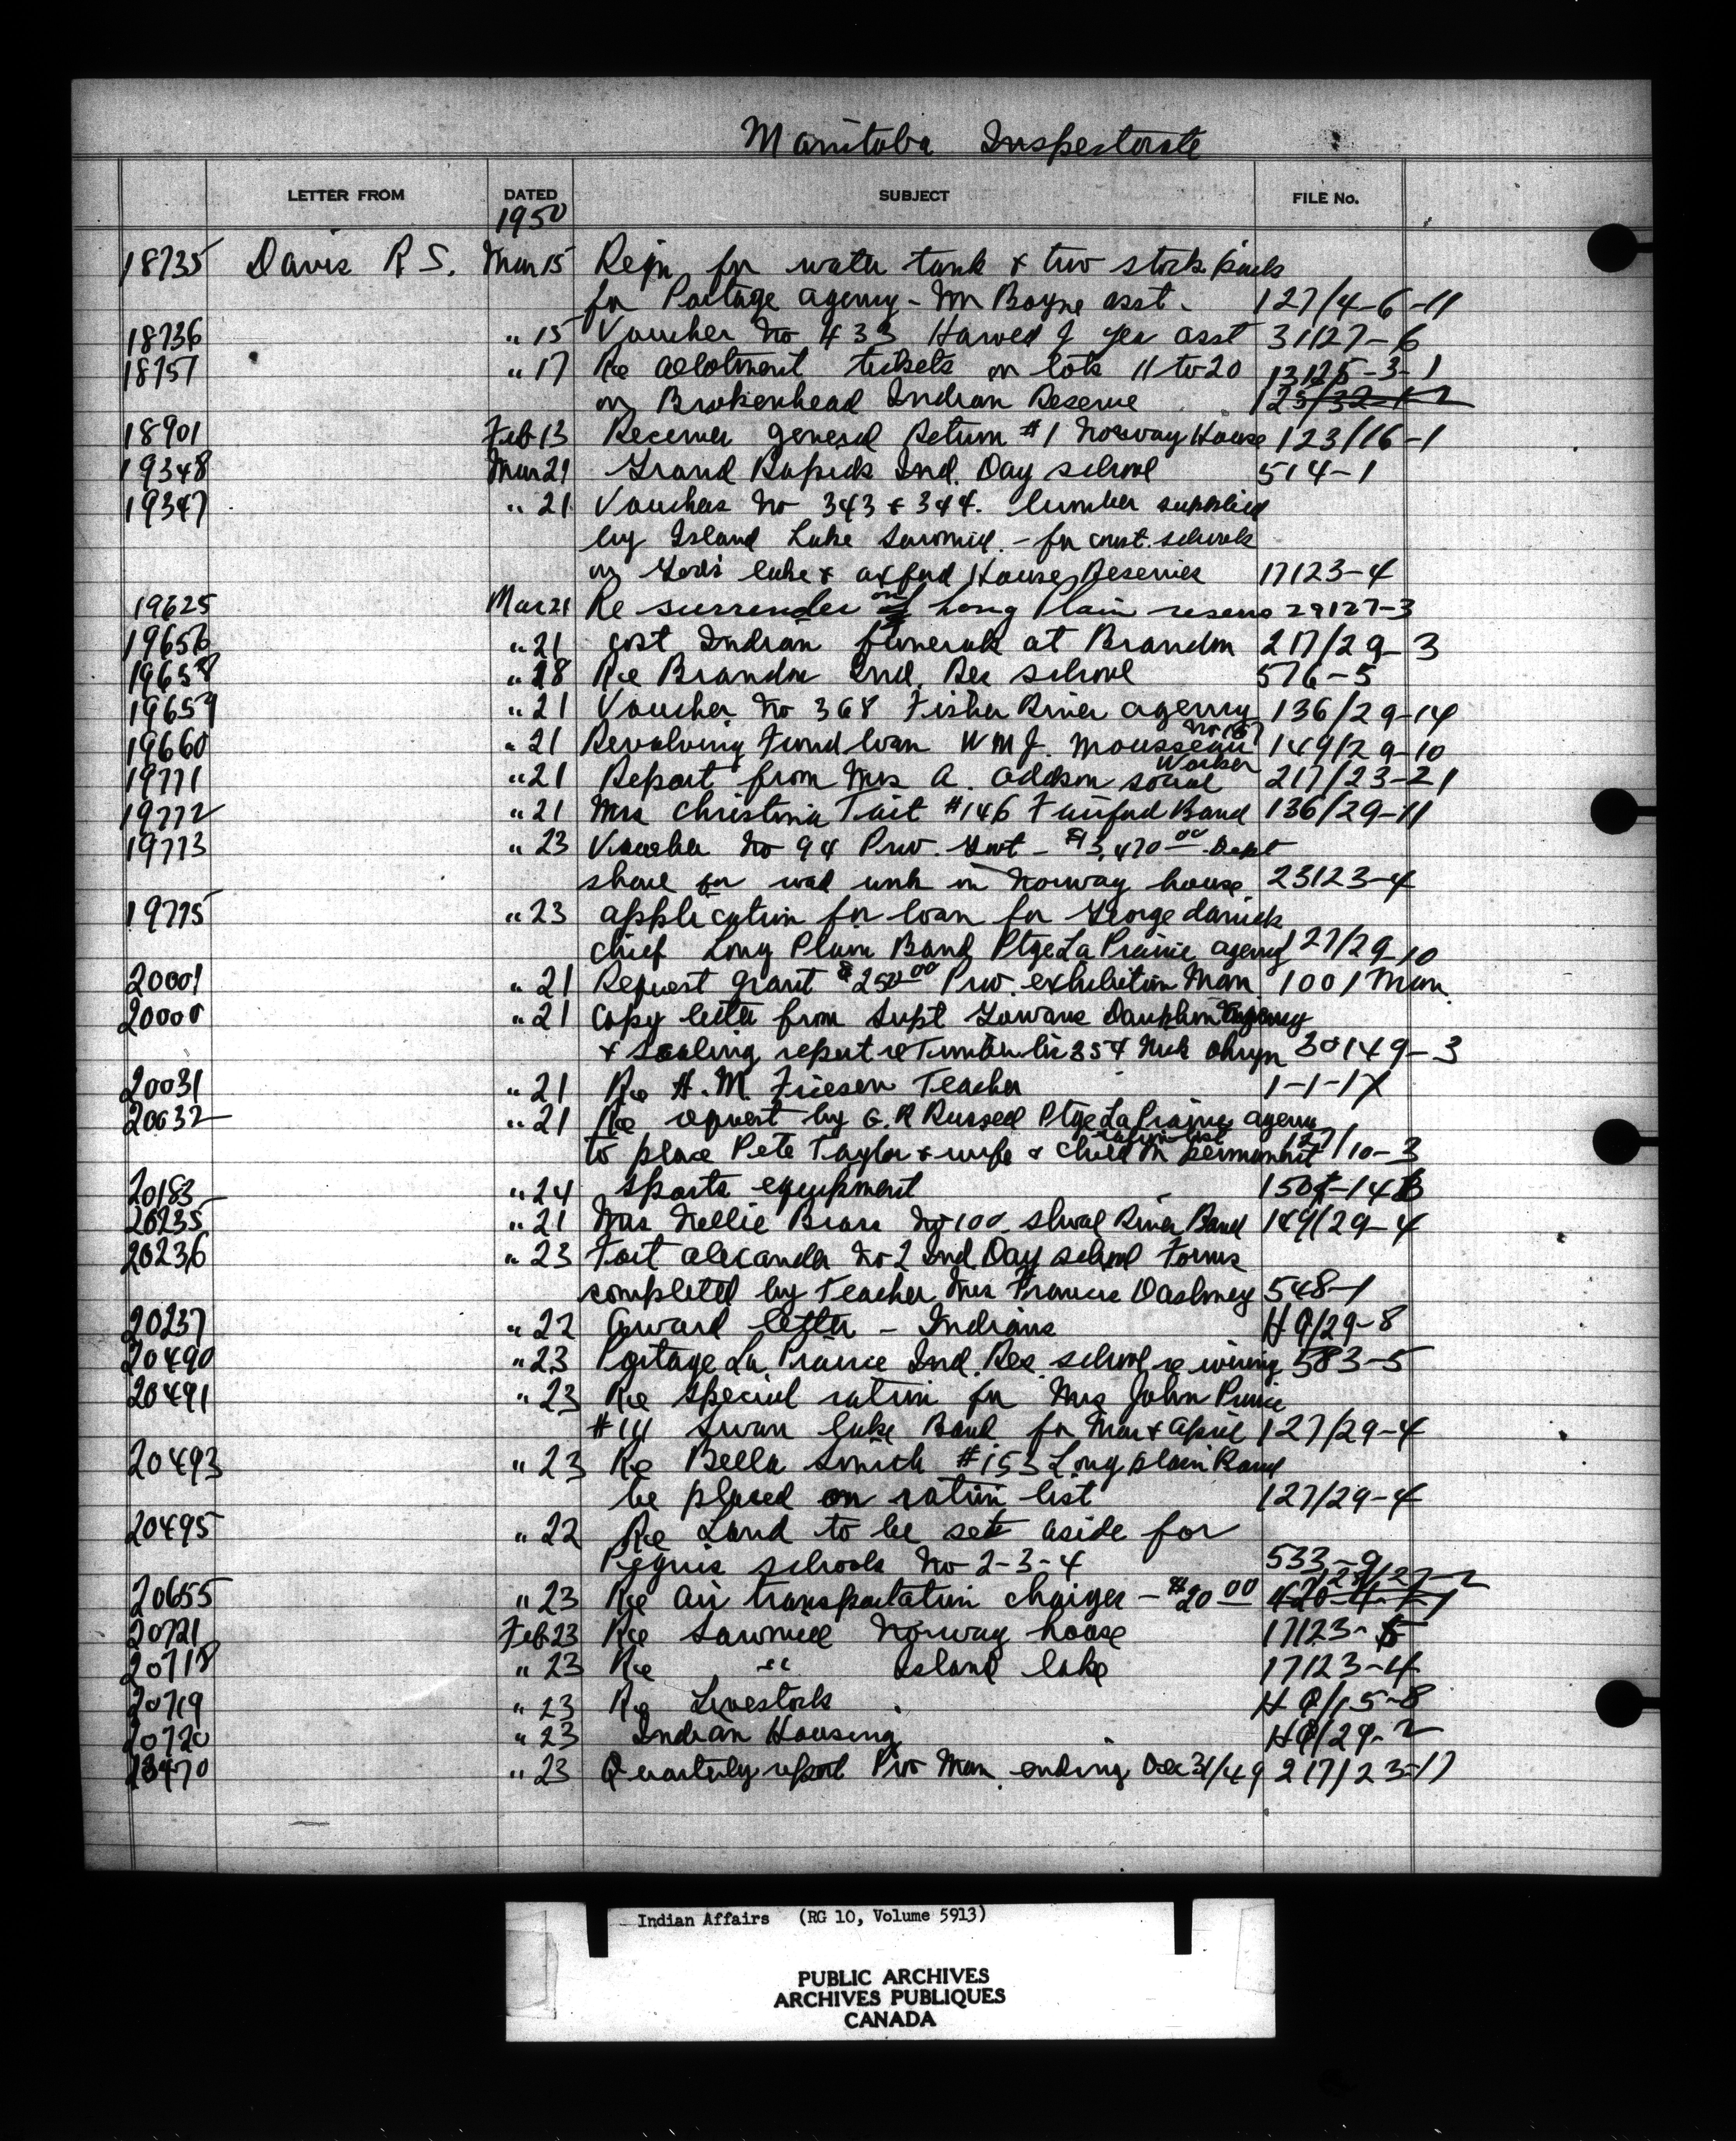 Manitoba Inspectorate
LETTER FROM DATED SUBJECT FILE No.
1950
18735 Davis R S. Mar 15 Reqn for water tank & two stock
for Portage agency - asst. 127/4-6-11
18736 " 15 Voucher No 433 asst 31127-6
18757 " 17 Re allotment tickets on lots 11 to 20 13125-3-1
on Brokenhead Indian Reserve 125/32-1-2
18901 Feb 13 Receiver general Return #1 Norway House 123/16-1
19348 Mar 21 Grand Rapids Ind. Day school 514-1
19347 " 21 Vouchers No 343 & 344. lumber supplied
by Island Lake Sawmill. - for const. schools
on Gods lake & oxford House Reserves 17123-4
19625 Mar 21 Re surrender on Long Plain reserve 29127-3
19656 " 21 cost Indian funerals at Brandon 217/29-3
19658 " 28 Re Brandon Ind. Res school 576-5
19659 " 21 Voucher No 368 Fisher River agency 136/29-14
19660 " 21 Revolving Fund loan WM J. Mousseau 149/29-10
19771 " 21 Report from Mrs A. social Worker 217/23-21
19772 " 21 Mrs Christina Tait #146 Fairford Band 136/29-11
19773 " 23 Voucher No 94 Prov. Govt - $13,470 00 Dept
share for in Norway house 23123-4
19775 " 23 application for loan for George
chief Long Plain Band Ptge La Prairie agency 127/29-10
20001 " 21 Request grant $250 00 Prov. exhibition Man 1001 Man
20000 " 21 copy letter from Supt Dauphin agency
& scaling report re Timber lic 354 Nick 30149-3
20031 " 21 Re H. M. Friesen Teacher 1-1-17
20032 " 21 Re request by G. R Russell Ptge La Prairie agency
to place Pete Taylor & wife & child on permanent ration list 127/10-3
20183 " 24 sports equipment
20235 " 21 Mrs Nellie Brass No 100 Shoal River Band 149/29-4
20236 " 23 Fort alexander No 2 Ind. Day school Forms
completed by Teacher Mrs Francis 548-1
20237 " 22 letter - Indians HQ/29-8
20490 " 23 Portage La Prairie Ind. Res. school re wiring 583-5
20491 " 23 Re special ration for Mrs John Prince
#111 Swan lake Band for Mar & April 127/29-4
20493 " 23 Re Bella Smith #153 Long plain Band
be placed on ration list 127/29-4
20495 " 22 Re Land to be set aside for
Peguis schools No 2-3-4 533-9
20655 " 23 Re Air transportation charges - $20 00
20721 Feb 23 Re Sawmill Norway house 17123-5
20718 " 23 Re " Island lake 17123-4
20719 " 23 Re Livestock HQ/15-8
20720 " 23 Indian Housing HQ/29-2
" 23 Quarterly report Prov Man ending Dec 31/49 217/23-17
Indian Affairs (RG 10, Volume 5913)
PUBLIC ARCHIVES
ARCHIVES PUBLIQUES
CANADA